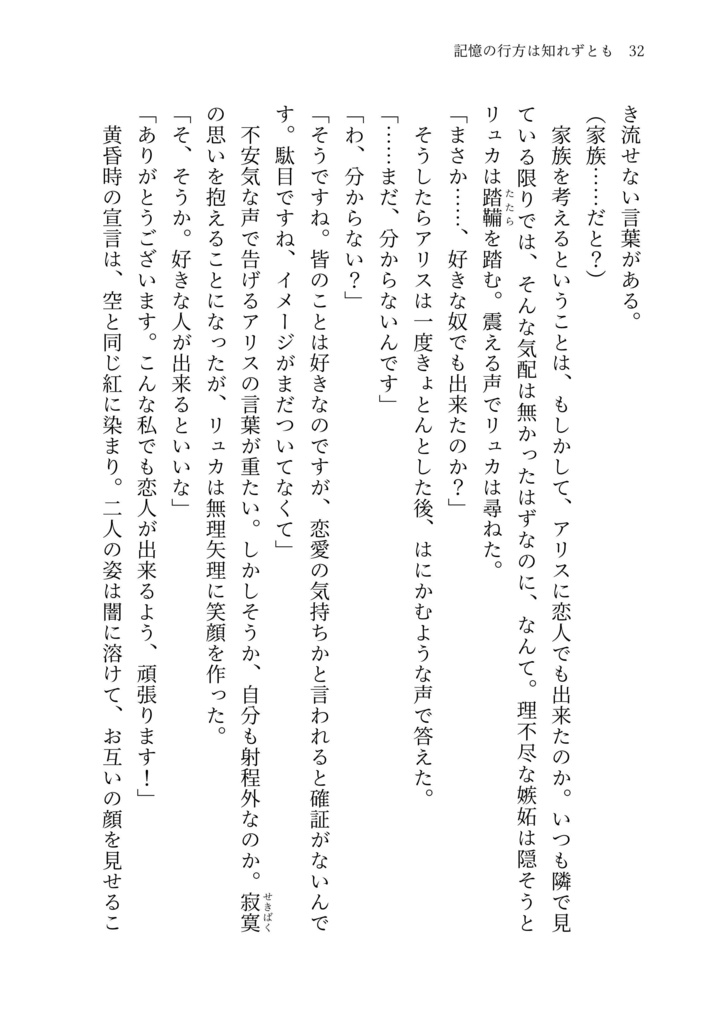 記憶の行方は知れずとも 32
き流せない言葉がある。
（家族……だと？）
家族を考えるということは、もしかして、アリスに恋人でも出来たのか。いつも隣で見
ている限りでは、そんな気配は無かったはずなのに、なんて。理不尽な嫉妬は隠そうと
リュカは踏鞴を踏む。震える声でリュカは尋ねた。
たたら
「まさか……、好きな奴でも出来たのか？」
そうしたらアリスは一度きょとんとした後、はにかむような声で答えた。
「……まだ、分からないんです」
「わ、分からない？」
「そうですね。皆のことは好きなのですが、恋愛の気持ちかと言われると確証がないんで
す。駄目ですね、イメージがまだついてなくて」
不安気な声で告げるアリスの言葉が重たい。しかしそうか、自分も射程外なのか。寂寞
せきばく
の思いを抱えることになったが、リュカは無理矢理に笑顔を作った。
「そ、そうか。好きな人が出来るといいな」
「ありがとうございます。こんな私でも恋人が出来るよう、頑張ります！」
黄昏時の宣言は、空と同じ紅に染まり。二人の姿は闇に溶けて、お互いの顔を見せるこ